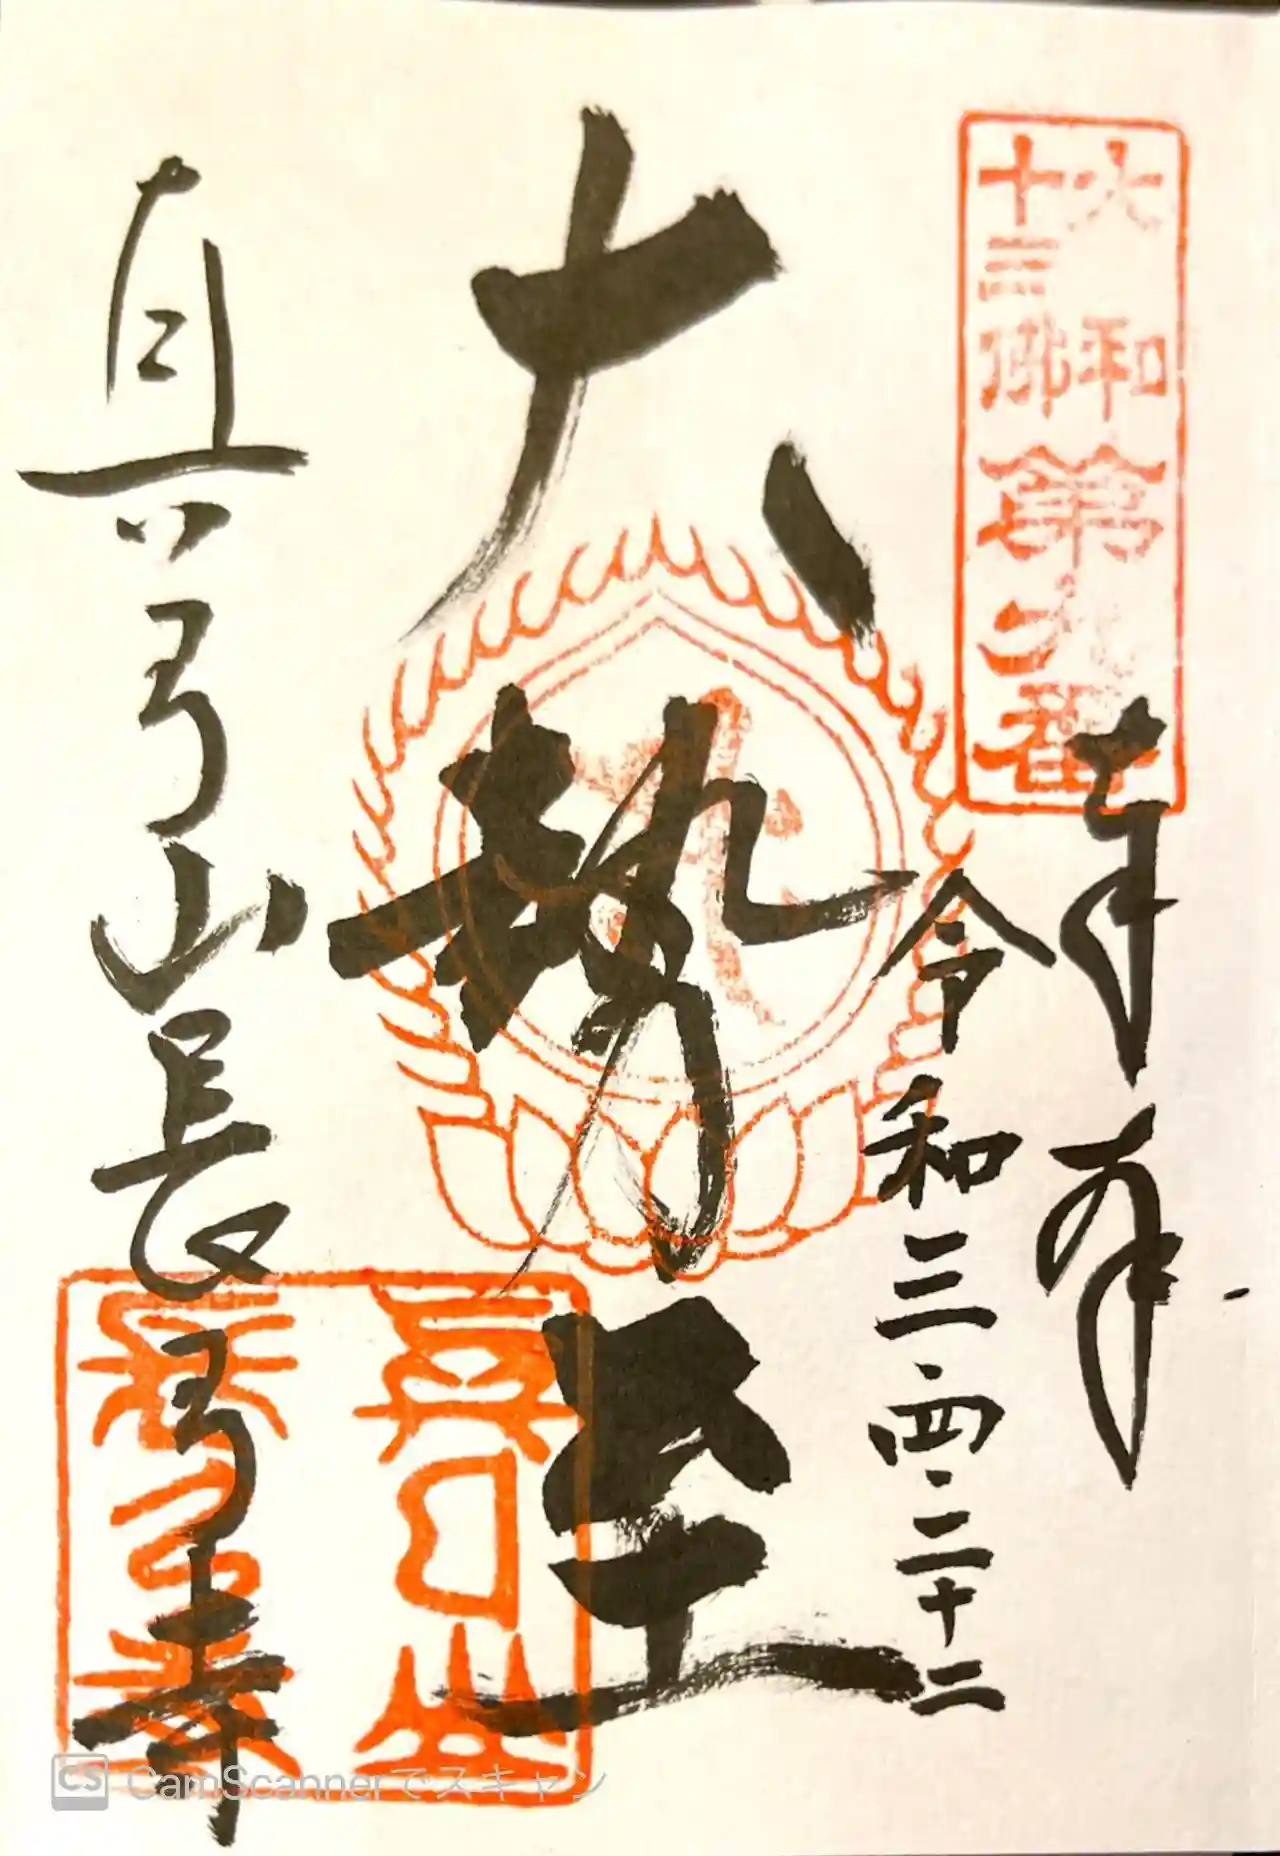 大和
十三佛
第九番
奉拜
令和三.四.二十二
大勢至
真弓山長弓寺
真弓山
長弓寺
CS CamScannerでスキャン